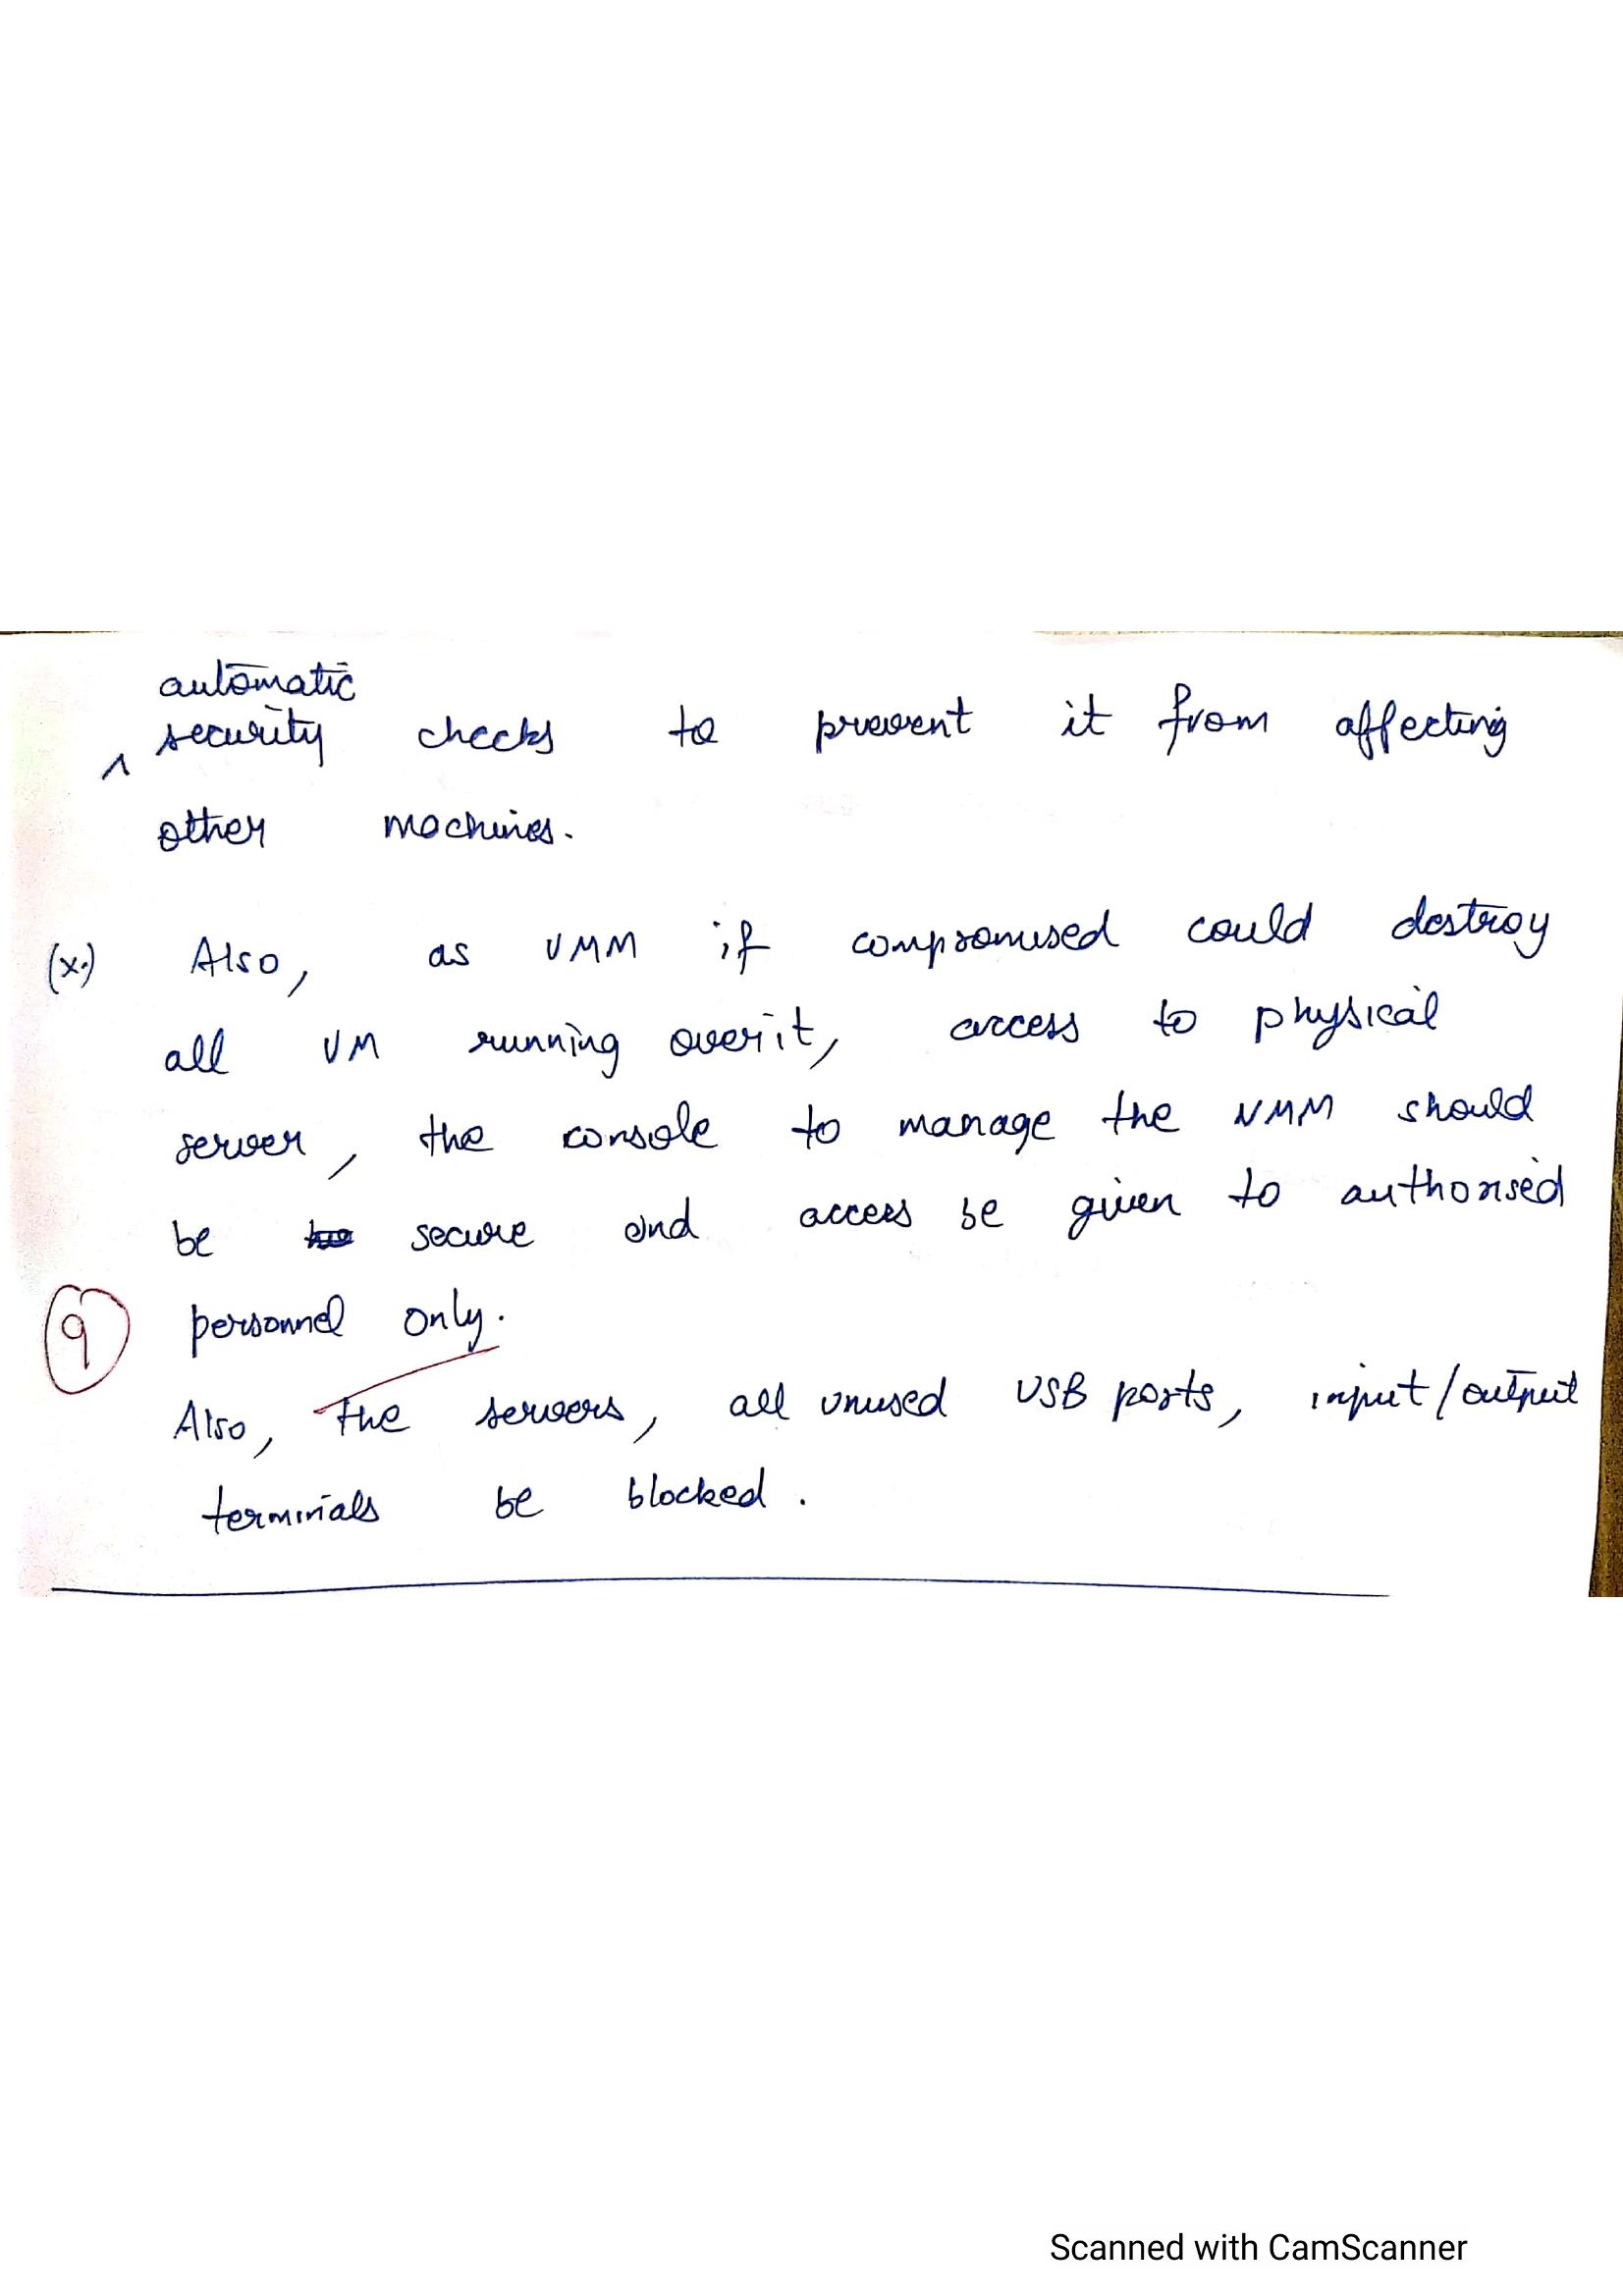 automatic
^ security checks to prevent it from affecting
other machines.
(x.) Also, as VMM if compromised could destroy
all VM running over it, access to physical
server, the console to manage the VMM should
be secure and access be given to authorised
9 personnel only.
Also, the servers, all unused USB ports, input/output
terminals be blocked.
Scanned with CamScanner